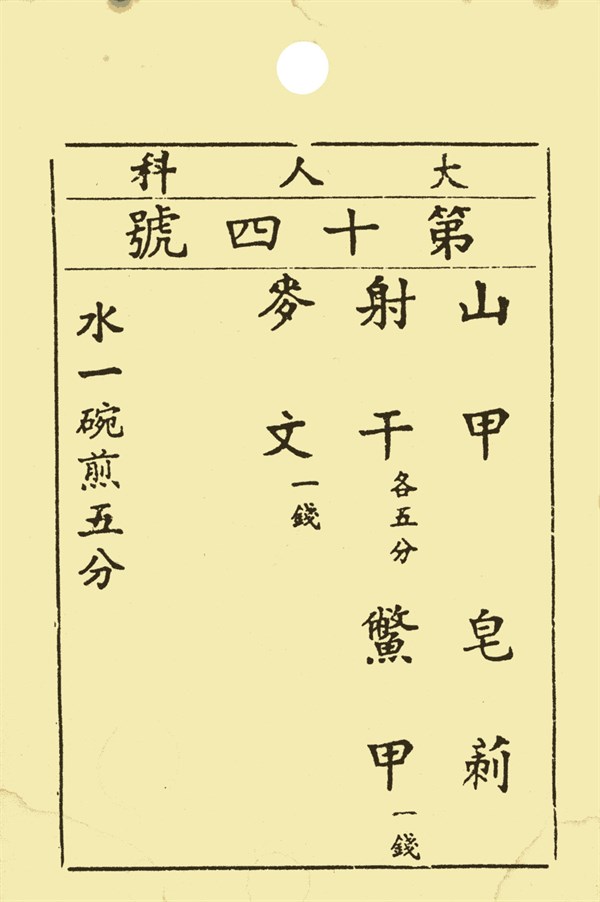 大人科
第十四號
山甲 皂莿
射干各五分 鱉甲一錢
麥文一錢
水一碗煎五分